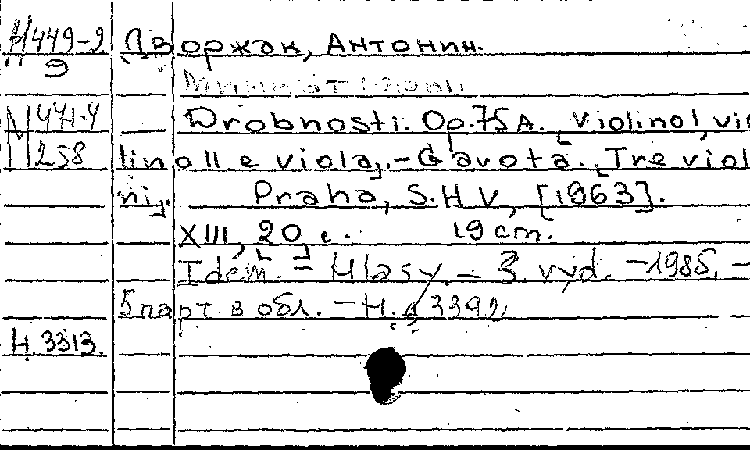 М 449-9 Дворжак, Антонин.
9
Миниатюры
М 471-4 Drobnosti. Op. 75 A. [Violino I, vio
258 lino II e viola]. - Gavota. [Tre violi
ni]. Praha, S.H.V., [1963].
XIII, 20, с. 19 cm.
Idem. - Hlasy. - 3. vyd. - 1985. -
5 парт. в обл. - Н. 3392
H 3313.